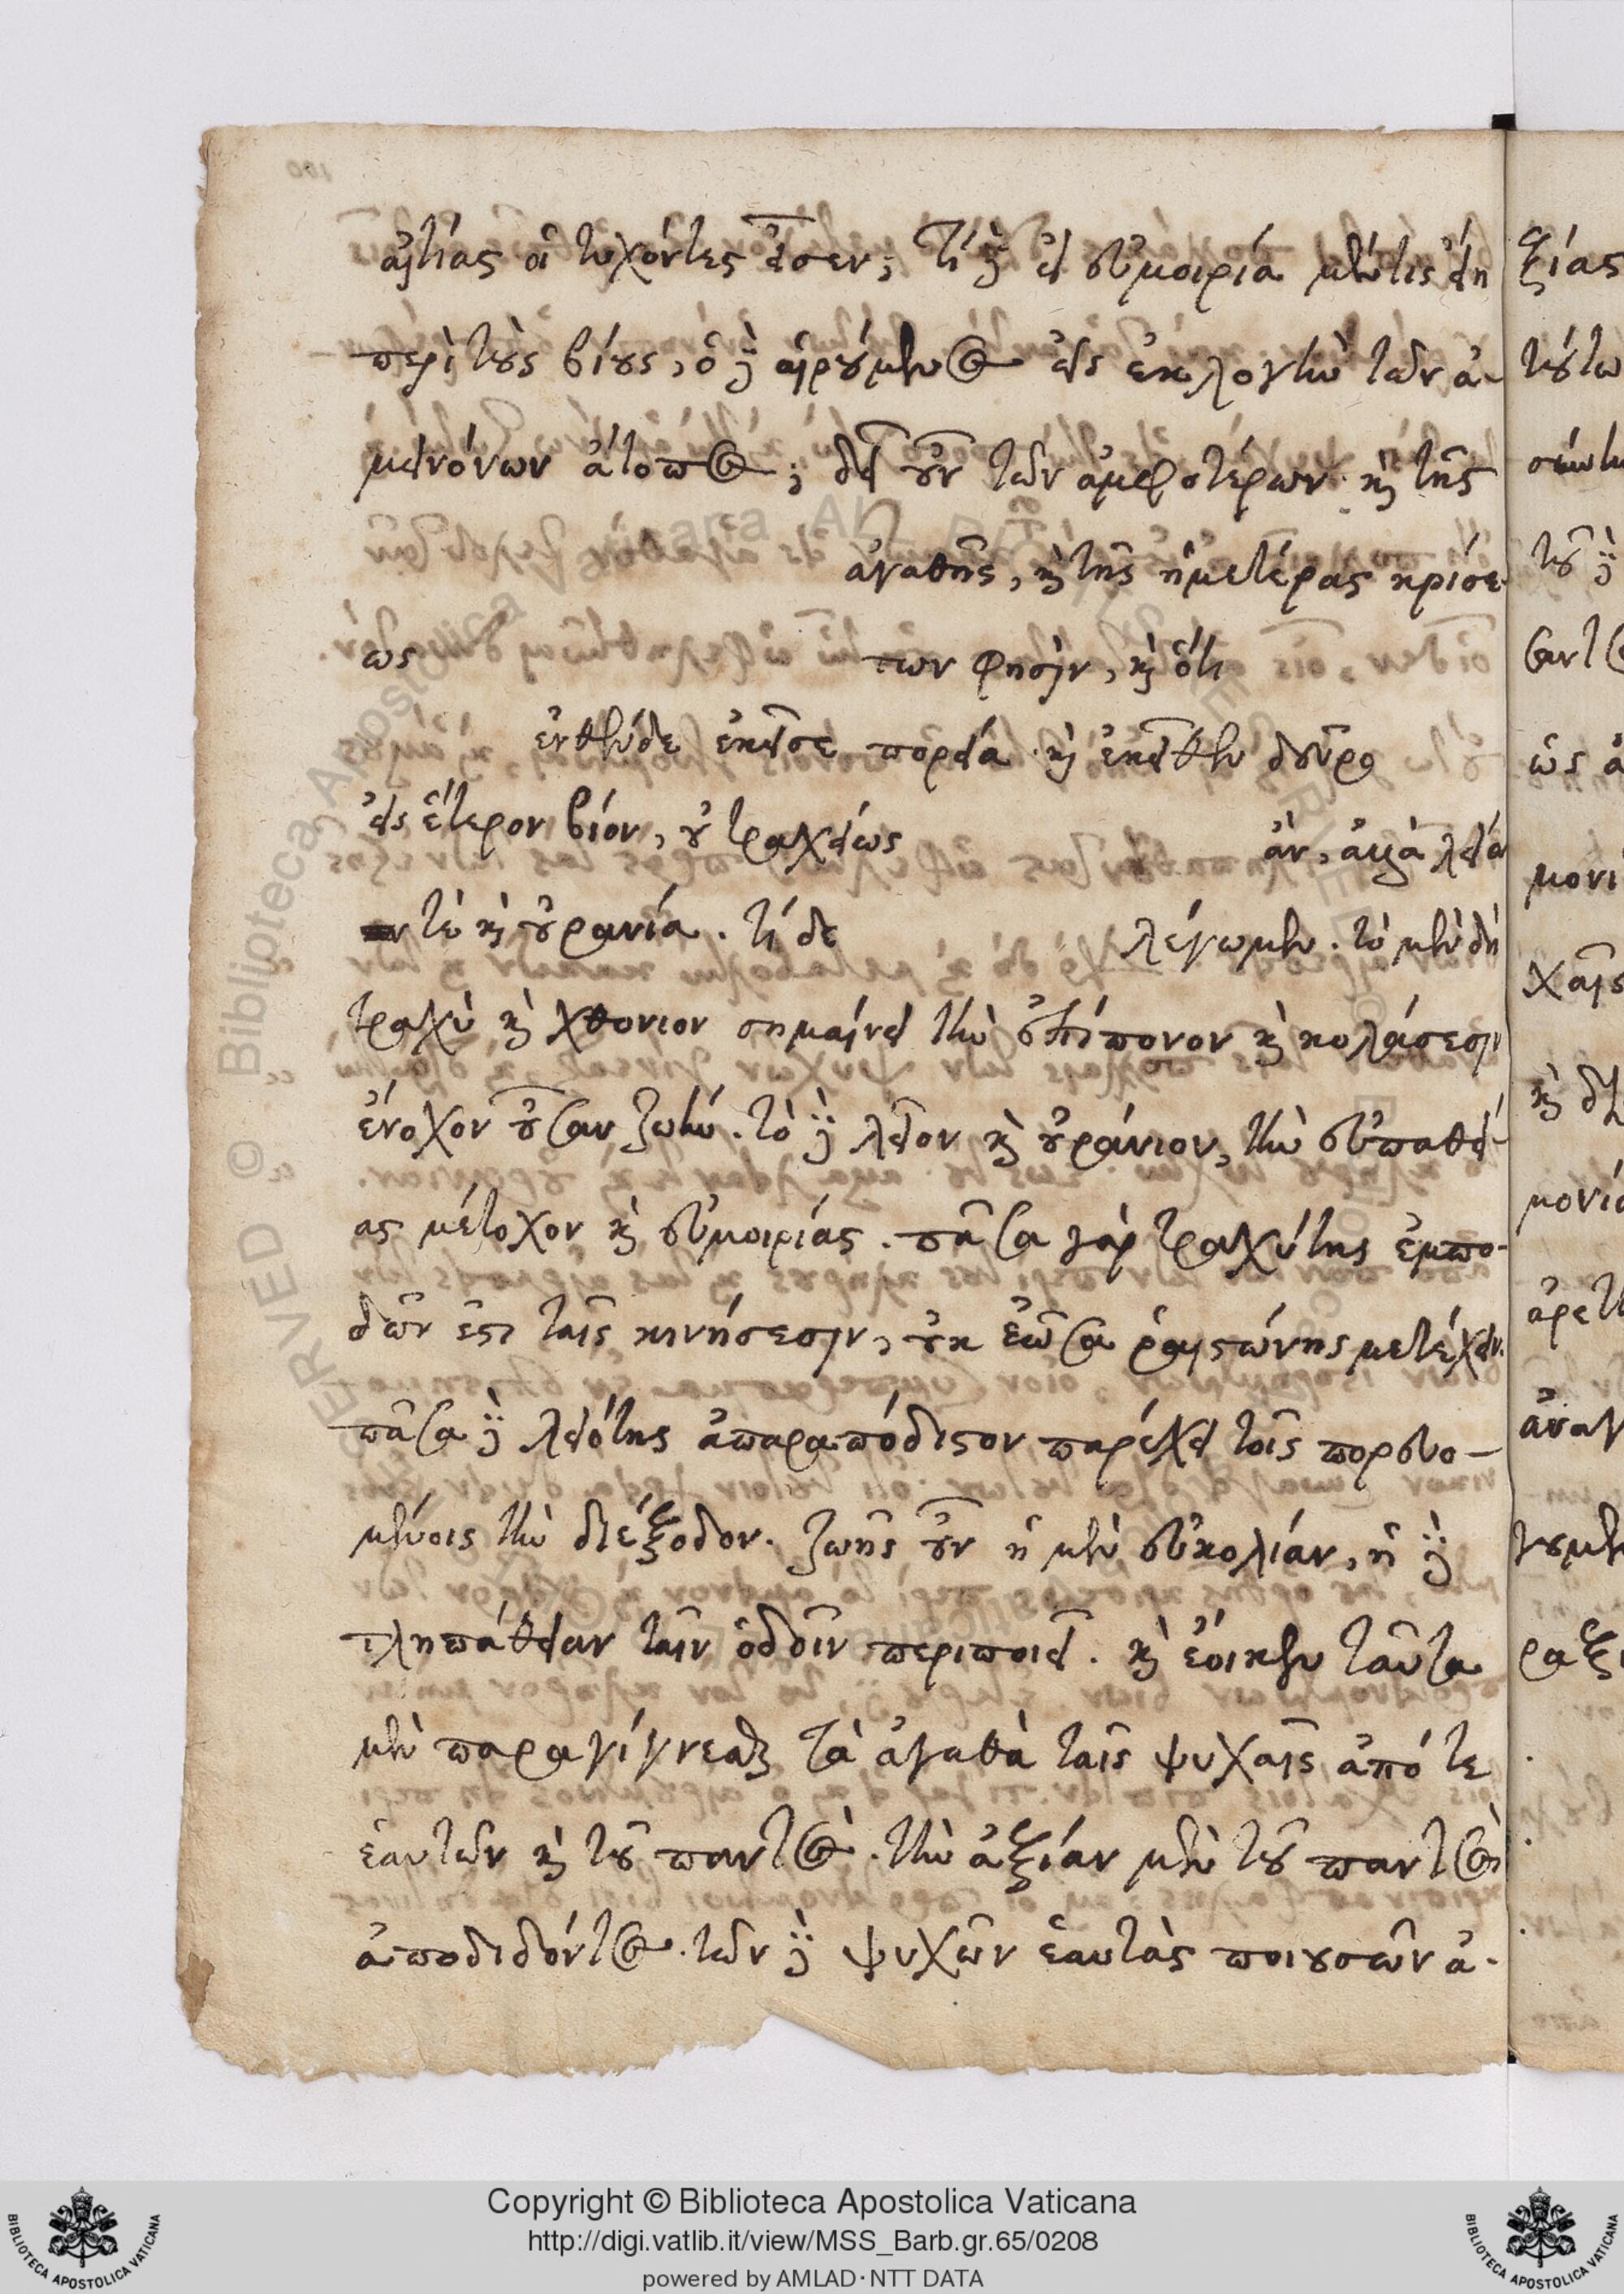 αἰτίας οἱ τυχόντες εἶεν; τί δὲ εἰ εὐμοιρία μέν τις εἴη
περὶ τοὺς βίους, ὁ δὲ αἱρούμενος εἰς ἐκλογὴν τῶν ἀ-
μεινόνων ἄτοπος; δεῖ οὖν τῶν ἀμφοτέρων καὶ τῆς
ἀγαθῆς, καὶ τῆς ἡμετέρας κρίσε-
ως των φησὶν, καὶ ὅτι
ἐνθένδε ἐκεῖσε πορεία καὶ ἐκεῖθεν δεῦρο
εἰς ἕτερον βίον, οὐ τραχείως ἂν, ἀλλὰ λεία
τὲ καὶ οὐρανία. τί δε λέγωμεν. τὸ μὲν δὴ
τραχὺ καὶ χθόνιον σημαίνει τὴν ἐπίπονον καὶ κολάσεσιν
ἔνοχον οὖσαν ζωήν. τὸ δὲ λεῖον καὶ οὐράνιον, τὴν εὐπαθεί-
ας μέτοχον καὶ εὐμοιρίας. πᾶσα γὰρ τραχύτης ἐμπο-
δῶν ἐστι ταῖς κινήσεσιν, οὐκ ἐῶσα ῥαιστώνης μετέχειν.
πᾶσα δὲ λειότης ἀπαραπόδιστον παρέχει τοῖς πορευο-
μένοις τὴν διέξοδον. ζωῆς οὖν ἡ μὲν εὐκολίαν, ἡ δὲ
πληπάθειαν ταῖν ὁδοῖν περιποιεῖ. καὶ ἔοικεν ταῦτα
μὲν παραγίγνεσθαι τὰ ἀγαθὰ ταῖς ψυχαῖς ἀπό τε
ἑαυτῶν καὶ τοῦ παντὸς. τὴν ἀξίαν μὲν τοῦ παντὸς
ἀποδιδόντος. τῶν δὲ ψυχῶν ἑαυτὰς ποιουσῶν ἀ-
Copyright © Biblioteca Apostolica Vaticana
http://digi.vatlib.it/view/MSS_Barb.gr.65/0208
powered by AMLAD·NTT DATA
BIBLIOTECA APOSTOLICA VATICANA
BIBLIOTECA APOSTOLICA VATICANA